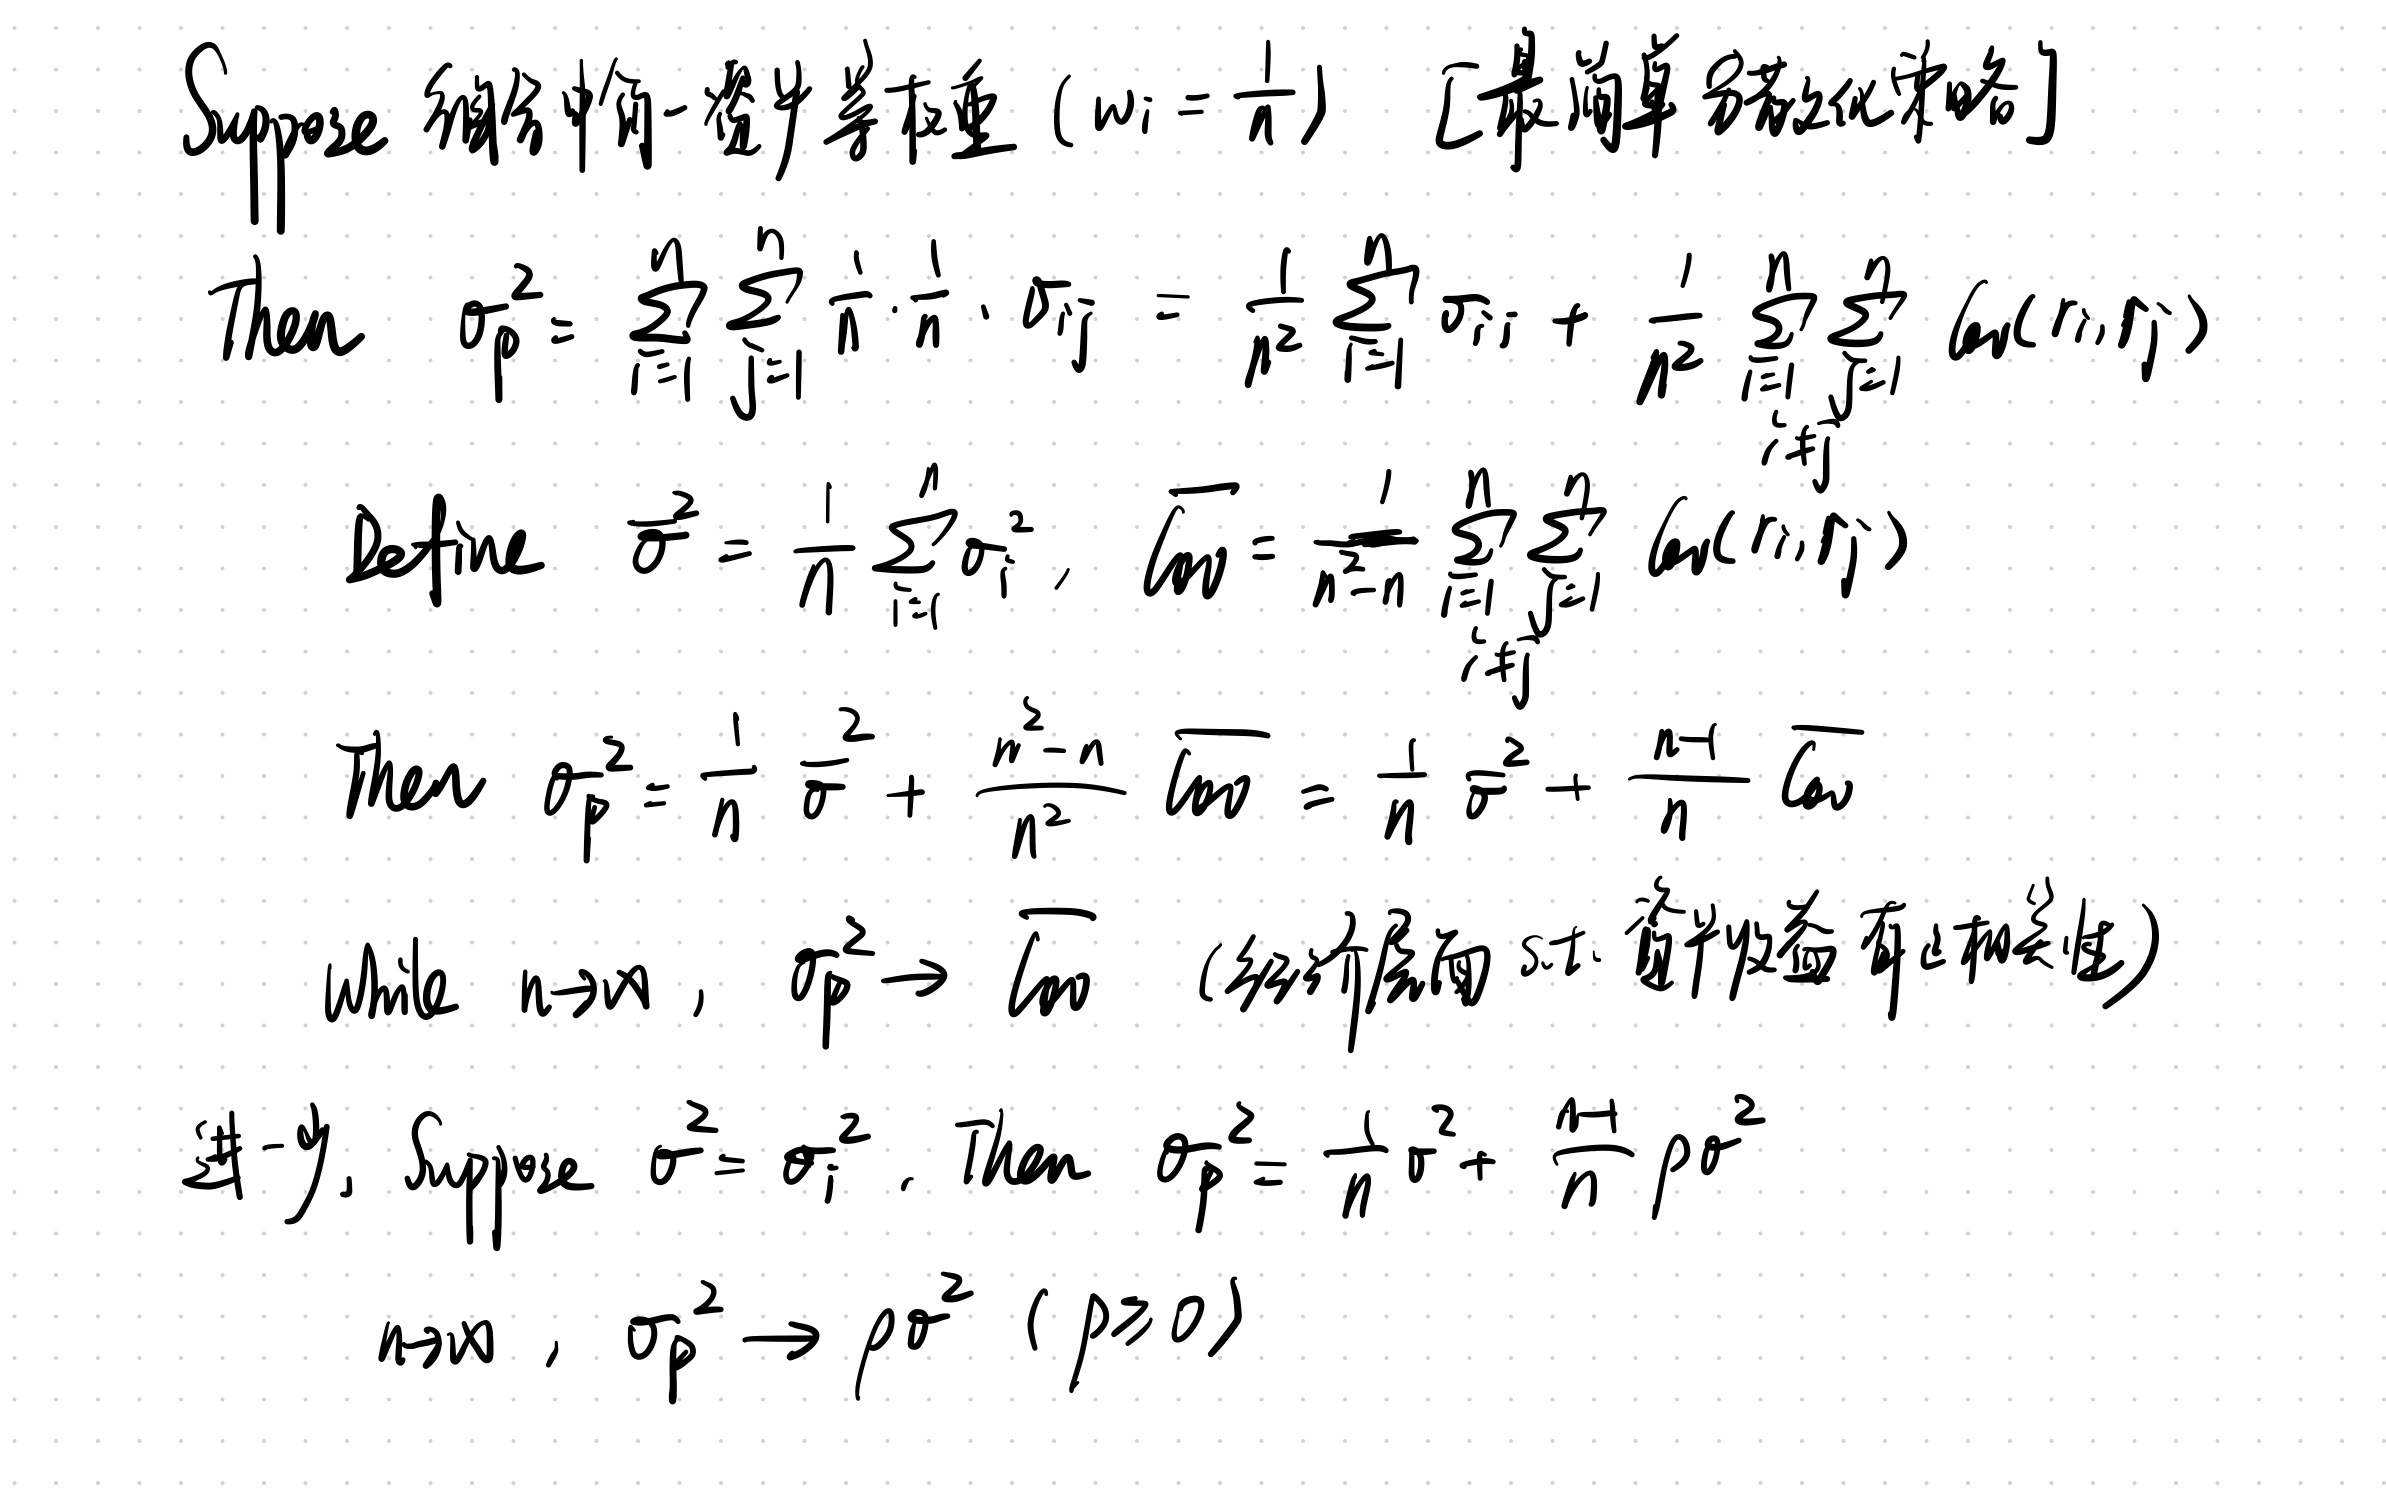 Suppose 组合中的 证券等权重 ( wᵢ = 1/n ) [最简单分散化策略]
Then σₚ² = ∑ᵢ₌₁ⁿ ∑ⱼ₌₁ⁿ 1/n · 1/n · σᵢⱼ = 1/n² ∑ᵢ₌₁ⁿ σᵢᵢ + 1/n² ∑ᵢ₌₁ⁿ ∑ⱼ₌₁ⁿ Cov(rᵢ, rⱼ)
i≠j
Define σ̄² = 1/n ∑ᵢ₌₁ⁿ σᵢ² , C̅o̅v̅ = 1/(n²−n) ∑ᵢ₌₁ⁿ ∑ⱼ₌₁ⁿ Cov(rᵢ, rⱼ)
i≠j
Then σₚ² = 1/n σ̄² + (n²−n)/n² C̅o̅v̅ = 1/n σ̄² + (n−1)/n C̅o̅v̅
While n→∞ , σₚ² → C̅o̅v̅ ( s.t. 证券收益 相关性)
进一步, Suppose σ² = σᵢ² , Then σₚ² = 1/n σ² + (n−1)/n ρσ²
n→∞ , σₚ² → ρσ² ( ρ ⩾ 0 )